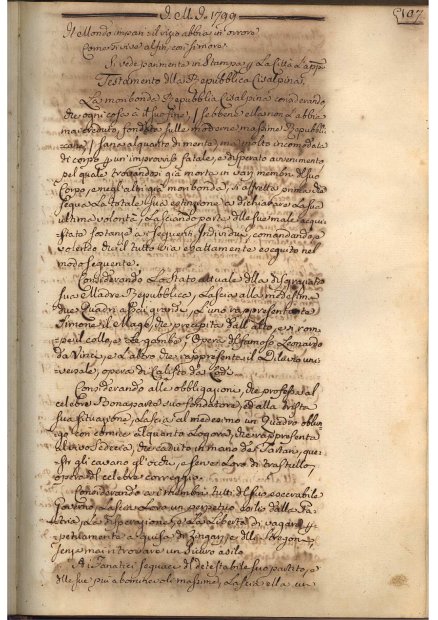 D. M. D. 1799
197
Il Mondo impari il vizio abbia in orrore
Come si vive al fin, così si more.
Si vede parimente in Stampa la Città
Testamento della Repubblica Cisalpina.
La moribonda Repubblica Cisalpina considerando,
che ogni cosa à il suo fine, sebbene ella non l'abbia
mai creduto, fondata sulle moderne massime Repubbli
cane, Sana alquanto di mente, ma molto incomodata
di corpo un improvviso fatale, e disperato avvenimento
pel quale trovandosi già morta in varj membri del suo
Corpo, e negl'altri già moribonda, si affretta prima che
segua la totale sua estinzione a dichiarare la sua
ultima volontà, lasciando parte delle sue male acqui
state sostanze a' seguenti Individui, comandando e
volendo che il tutto sia esattamente eseguito nel
modo seguente.
Considerando lo stato attuale della disgraziata
sua Madre Repubblica, lascia alla medesima
due Quadri assai grandi, l'uno rappresentante
Simone il Mago, che precipita dall'alto, e si rom
pe il collo, e le gambe, Opera del famoso Leonardo
da Vinci, e l'altro che rappresenta il Diluvio uni
versale, opera di Calisto da Lodi.
Considerando alle obbligazioni, che professa al
celebre Bonaparte suo fondatore, ed alla trista
sua situazione, lascia al medesimo un Quadro obblu
go con cornice alquanto logora, che rappresenta
caduto in mano de' Tartari, que
sti gli cavano gl'occhi, e
opera del celebre correggio.
Considerando a' membri tutti del suo esecrabile
Governo lascia loro un perpetuo esilio dalla Pa
tria, la disperazione, e la libertà di vagare
petuamente a guisa di Zingari, e delle Streghe,
senza mai trovare un sicuro asilo.
A' Fanatici seguaci del detestabile suo partito, e
delle sue più abominevoli massime, lascia ella un